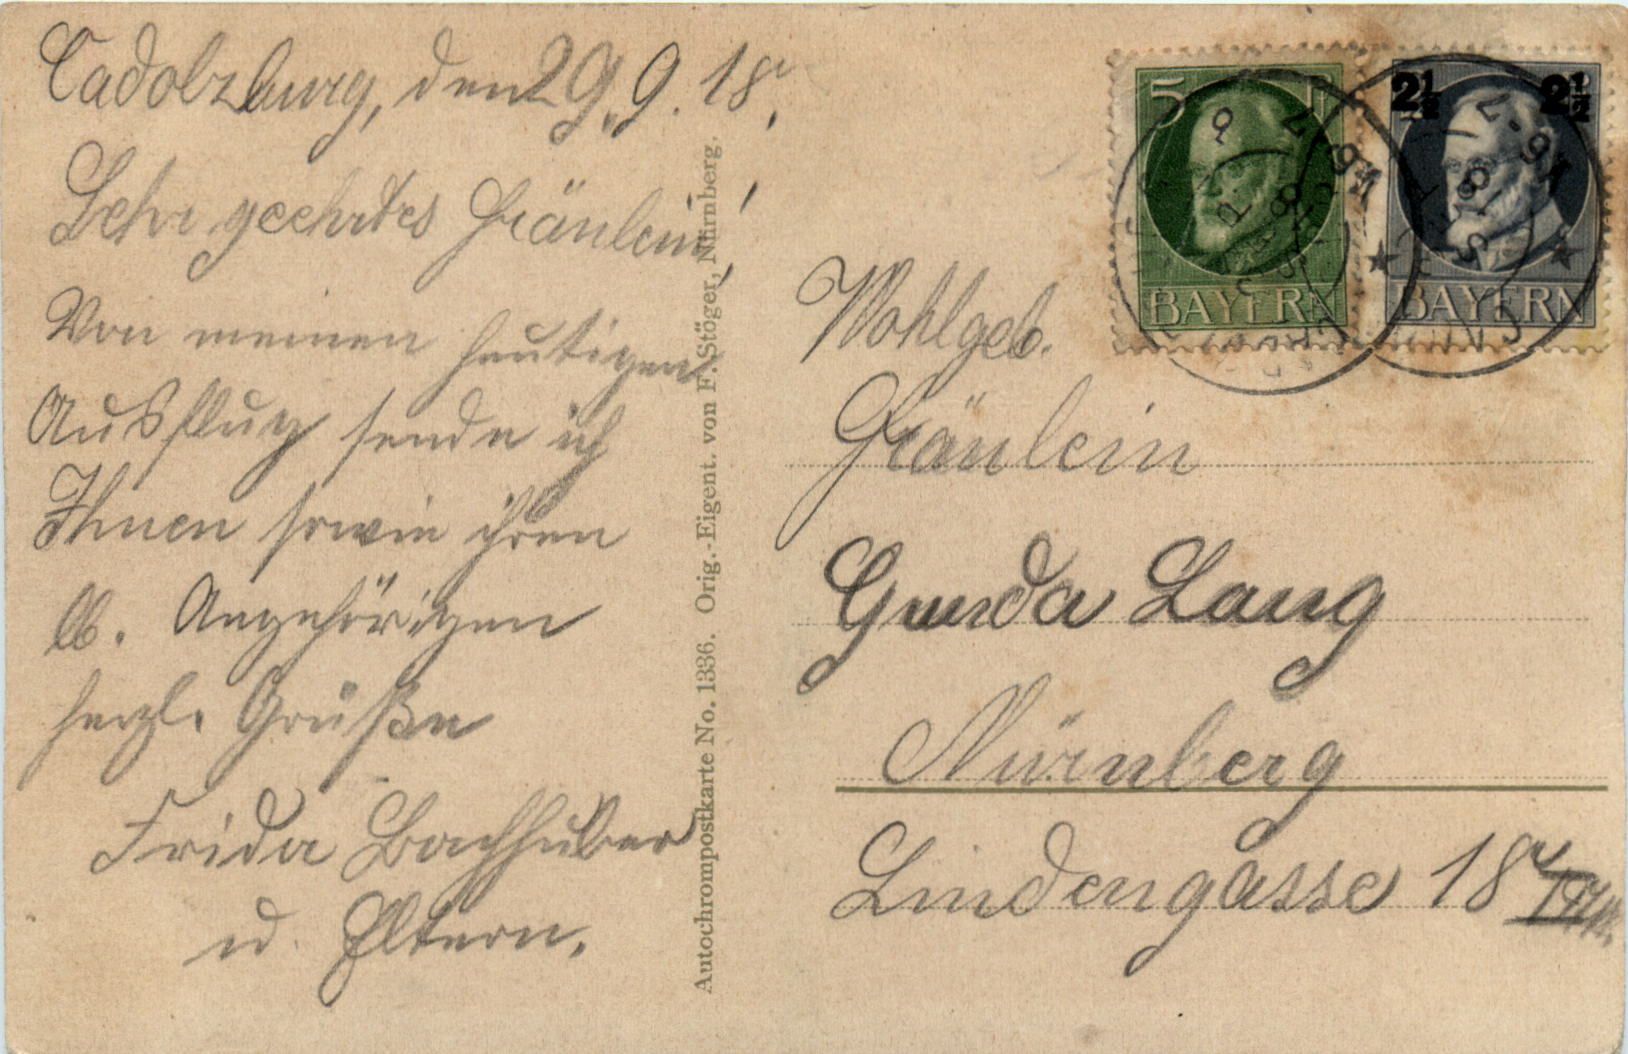 Cadolzburg, den 29.9.18.
Sehr geehrtes Fräulein!
Von meinen heutigen
Ausflug sende ich
Ihnen sowie ihren
lb. Angehörigen
herzl. Grüße
Frida Bachhuber
u. Eltern.
Autochrompostkarte No. 1336. Orig.-Eigent. von F. Stöger, Nürnberg.
5 P
BAYERN
2½ 2½
BAYERN
Wohlgeb.
Fräulein
Gunda Lang
Nürnberg
Lindengasse 18